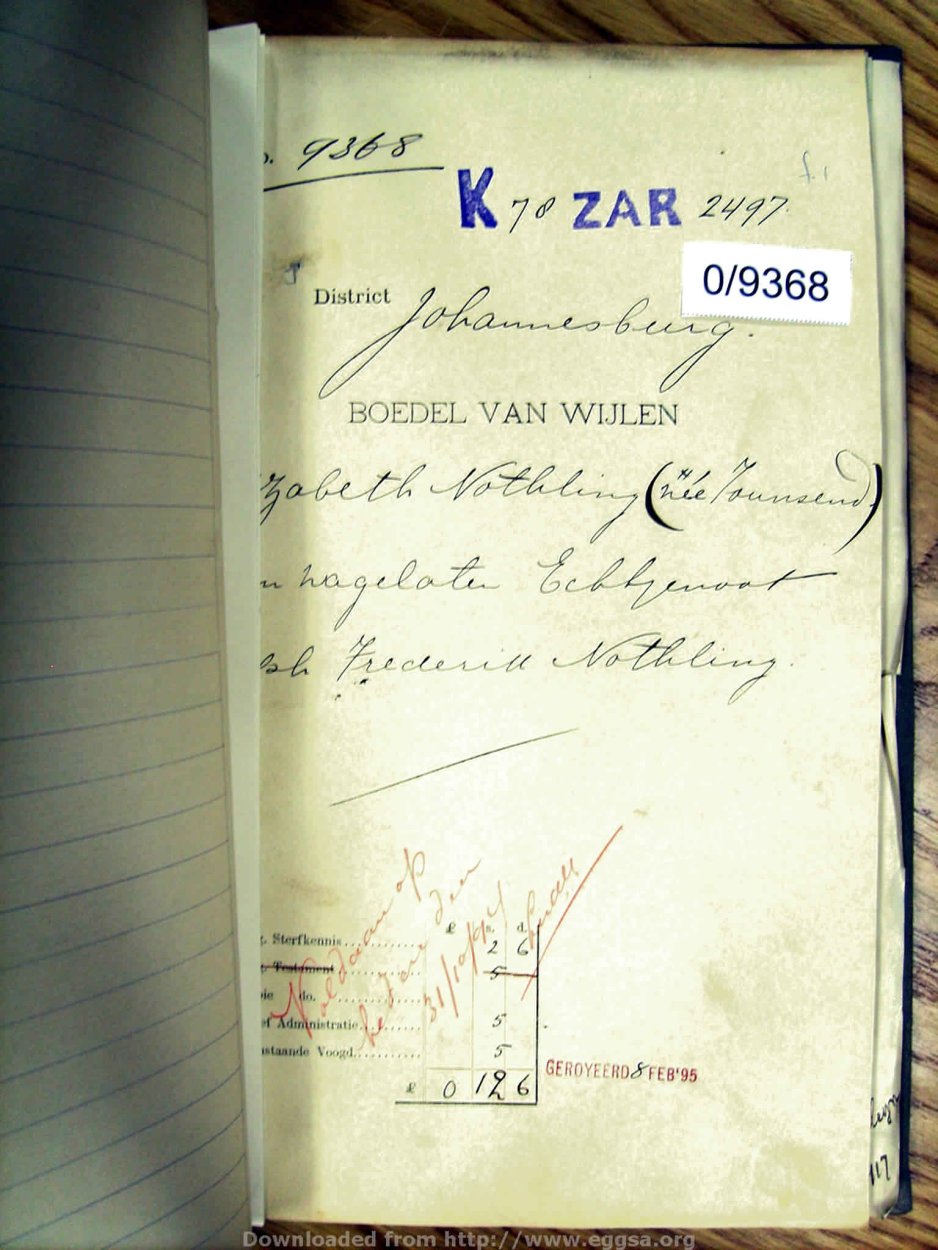 . 9368
f.1
K 78 ZAR 2497
0/9368
District Johannesburg.
BOEDEL VAN WIJLEN
zabeth Nothling (née Townsend)
n nagelaten Echtgenoot
ph Frederik Nothling.
Voldaan op
den
31/10/94
£ s. d.
. Sterfkennis 2 6
. Testament 5
ie do.
ef Administratie 5
staande Voogd 5
£ 0 12 6
GEROYEERD 8 FEB'95
117
Downloaded from http://www.eggsa.org